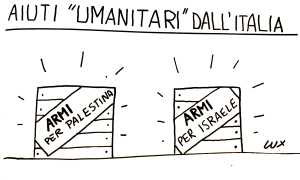 AIUTI "UMANITARI" DALL'ITALIA
ARMI
PER PALESTINA
ARMI
PER ISRAELE
LUX